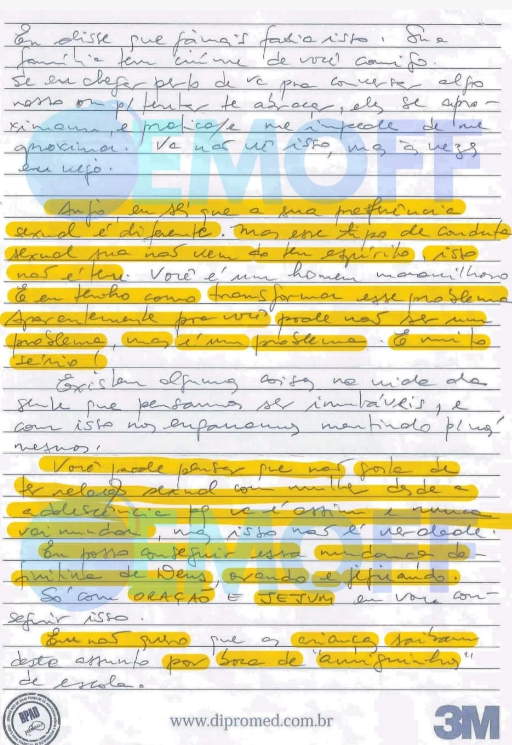 Eu disse que jamais faria isso. Sua
família tem ciúme de você comigo.
Se eu chegar perto de vc pra conversar algo
nosso ou p/ tentar te abraçar, eles se apro-
ximam, e me impede de me
aproximar. Vc não vê isso, mas às vezes
eu vejo.
Anjo, eu sei que a sua preferência
sexual é diferente. Mas esse tipo de conduta
sexual sua não vem do teu espírito, isso
não é teu. Você é um homem maravilhoso
E eu tenho como transformar esse problema
Aparentemente pra você pode não ser um
problema, mas é um problema. É muito
sério!
Existem algumas coisas na vida da
gente que pensamos ser imutáveis, e
com isso nos enganamos mentindo p/ nós
mesmos.
Você pode pensar que não gosta de
ter relação sexual com mulher desde a
adolescência pq vc é assim e nunca
vai mudar, mas isso não é verdade.
Eu posso conseguir essa mudança de-
finitiva de Deus, orando e jejuando.
Só com ORAÇÃO E JEJUM eu vou con-
seguir isso.
Eu não quero que as crianças saibam
deste assunto por boca de "amiguinhos"
de escola.
EMOFF
EMOFF
BPAD
www.dipromed.com.br
3M